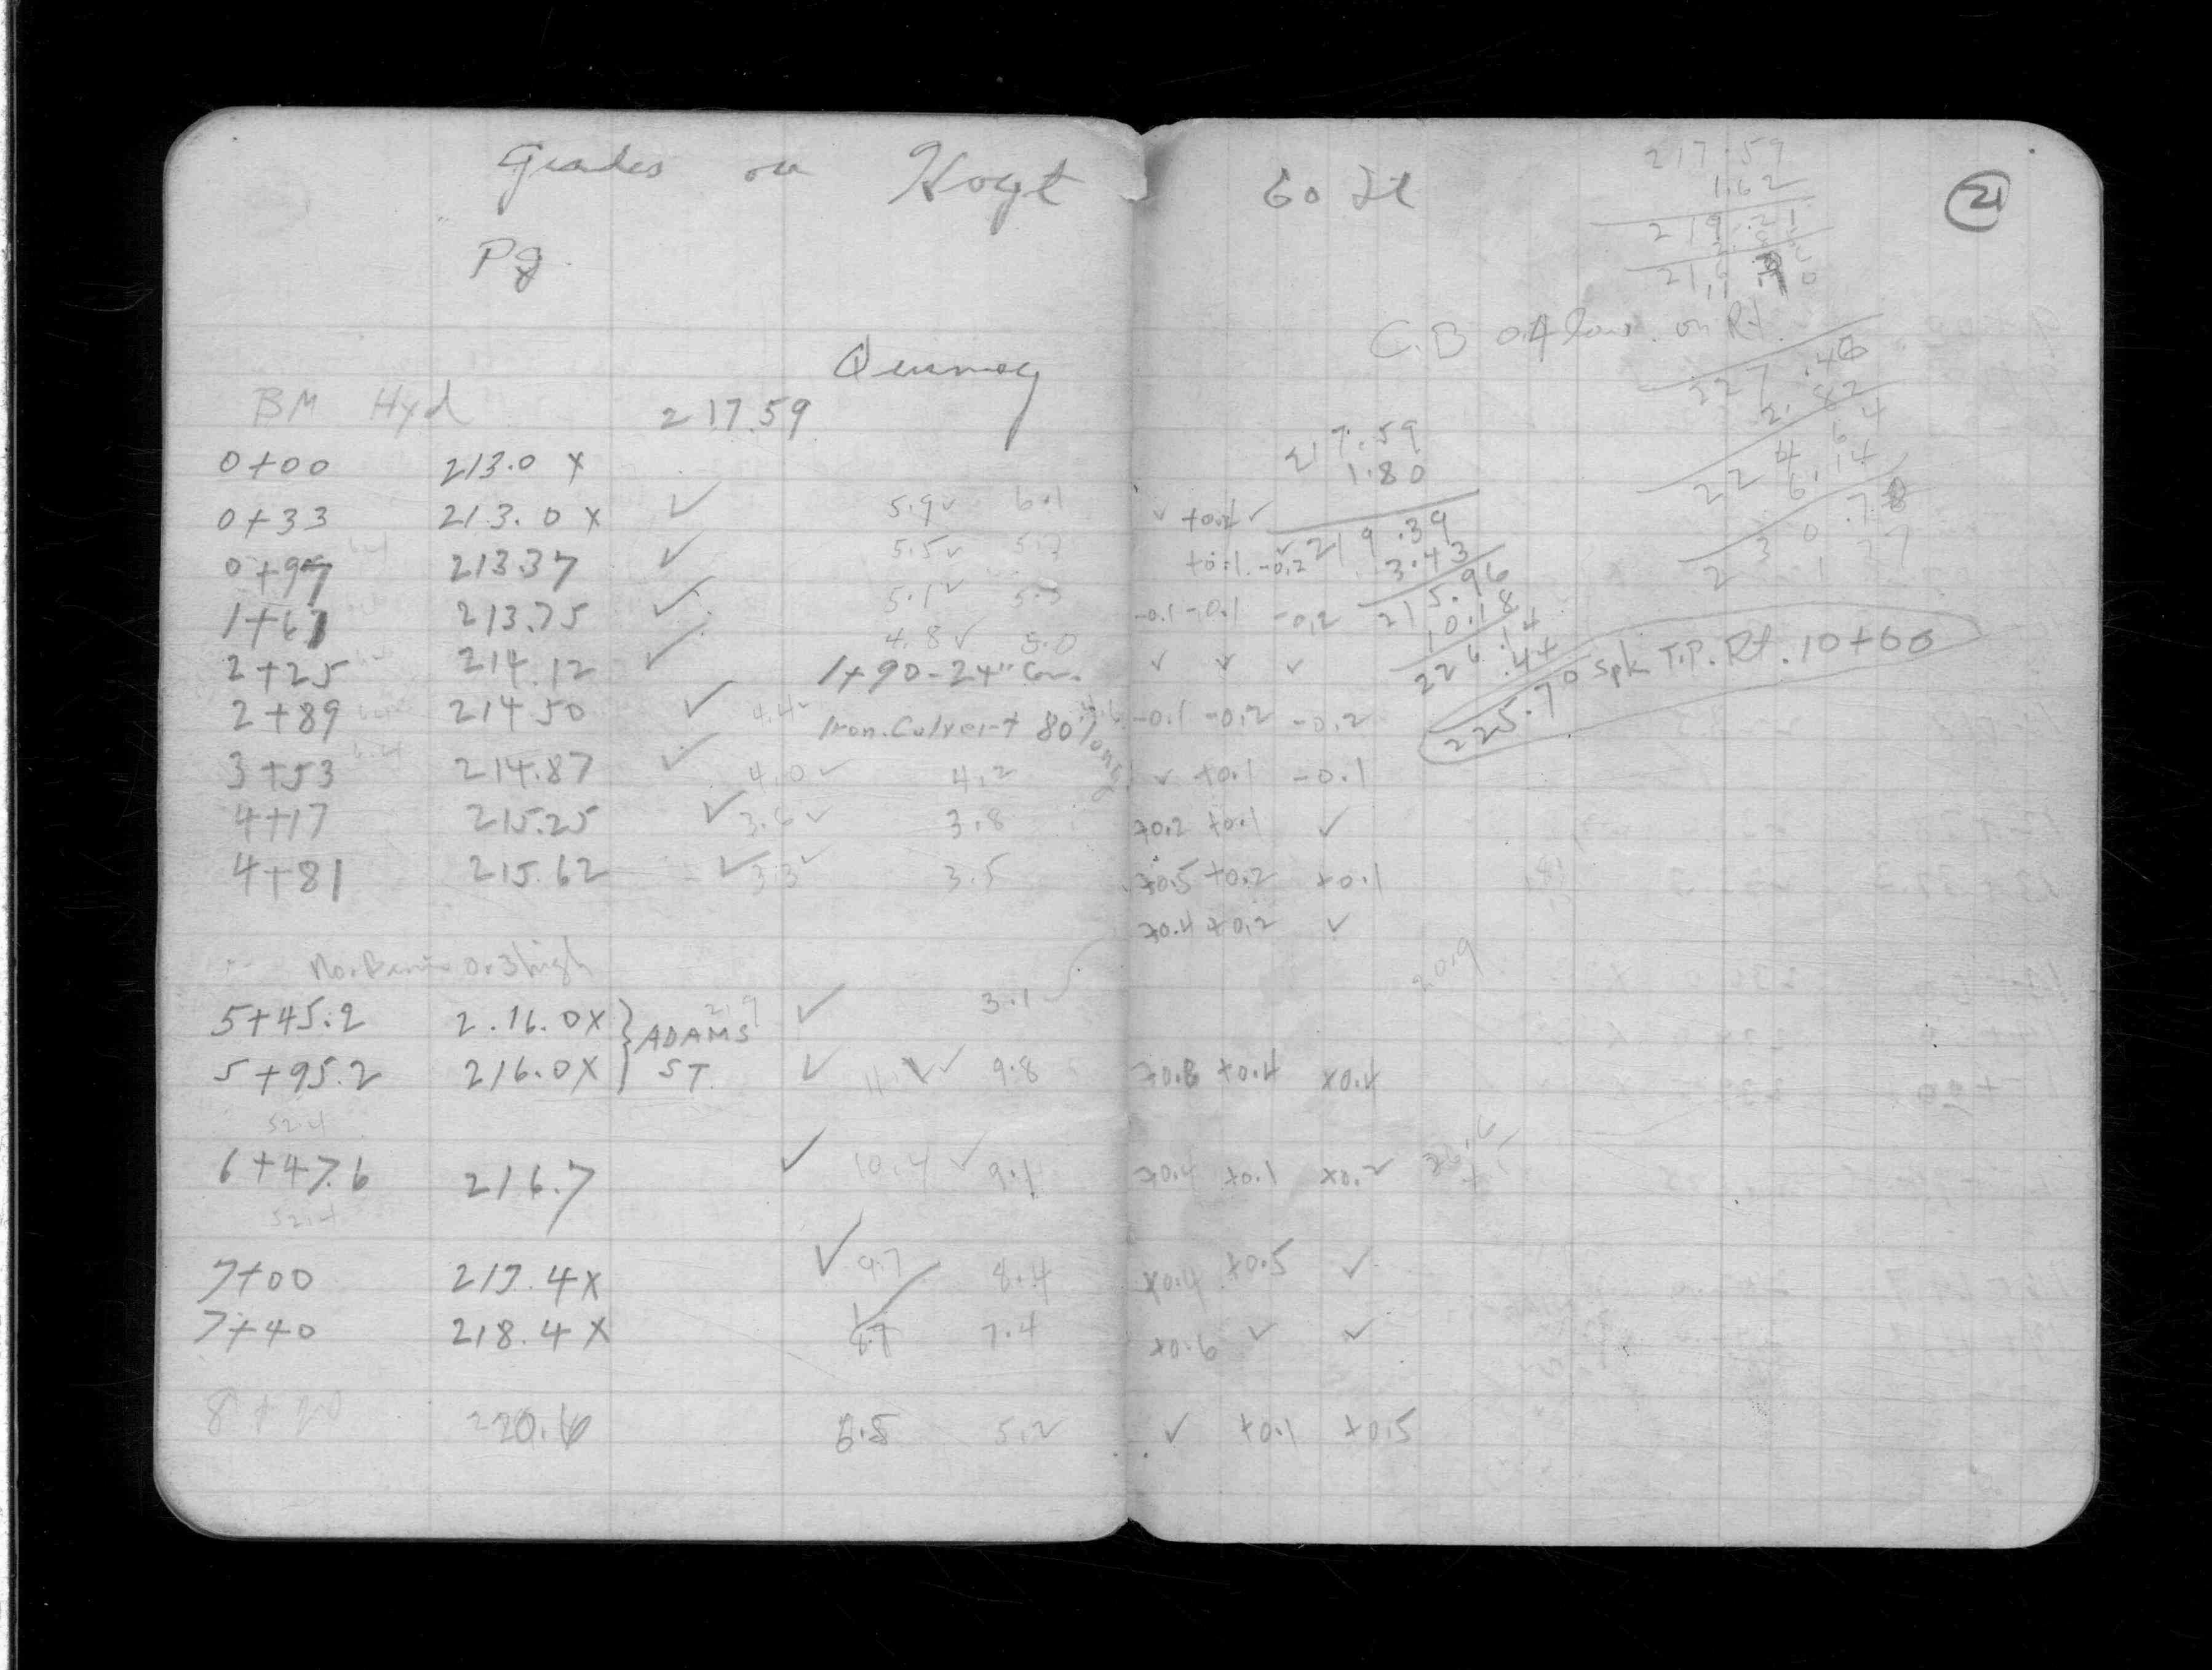 Grades on Hoyt 60 St
Pg.
21
217.59
1.62
219.21
C.B 0.4 low. on Rt.
Quincy
BM Hyd 217.59
0+00 213.0 X
0+33 213.0 X ✓ 5.9✓ 6.1
0+97 213.37 ✓ 5.5✓
1+61 213.75 ✓ 5.1✓
2+25 214.12 ✓ 4.8✓ 5.0
1+90-24" Cor.
2+89 214.50 ✓ 4.4✓
Iron.Culvert 80' long
3+53 214.87 ✓ 4.0✓ 4.2
4+17 215.25 ✓ 3.6✓ 3.8
4+81 215.62 ✓ 3.3✓ 3.5
0.3 high
5+45.2 2.16.0X ADAMS ✓ 3.1
5+95.2 216.0X ST. ✓ 9.8
52.4
6+47.6 216.7 ✓ 10.4 ✓ 9.1
52.4
7+00 217.4X ✓ 9.7 8.4
7+40 218.4X 8.7 7.4
220.6 6.5 5.2
217.59
1.80
219.39
3.43
215.96
10.18
226.14
.44
225.70 spk T.P. Rt. 10+60
227.46
2.82
224.64
6.14
230.78
+0.1 -0.2
-0.1 -0.1 -0.2
✓ ✓ ✓
-0.1 -0.2 -0.2
✓ +0.1 -0.1
+0.2 +0.1 ✓
+0.5 +0.2 +0.1
+0.4 +0.2 ✓
20.9
+0.8 +0.4 +0.4
+0.4 +0.1 +0.2
+0.4 +0.5 ✓
+0.6 ✓ ✓
✓ +0.1 +0.5